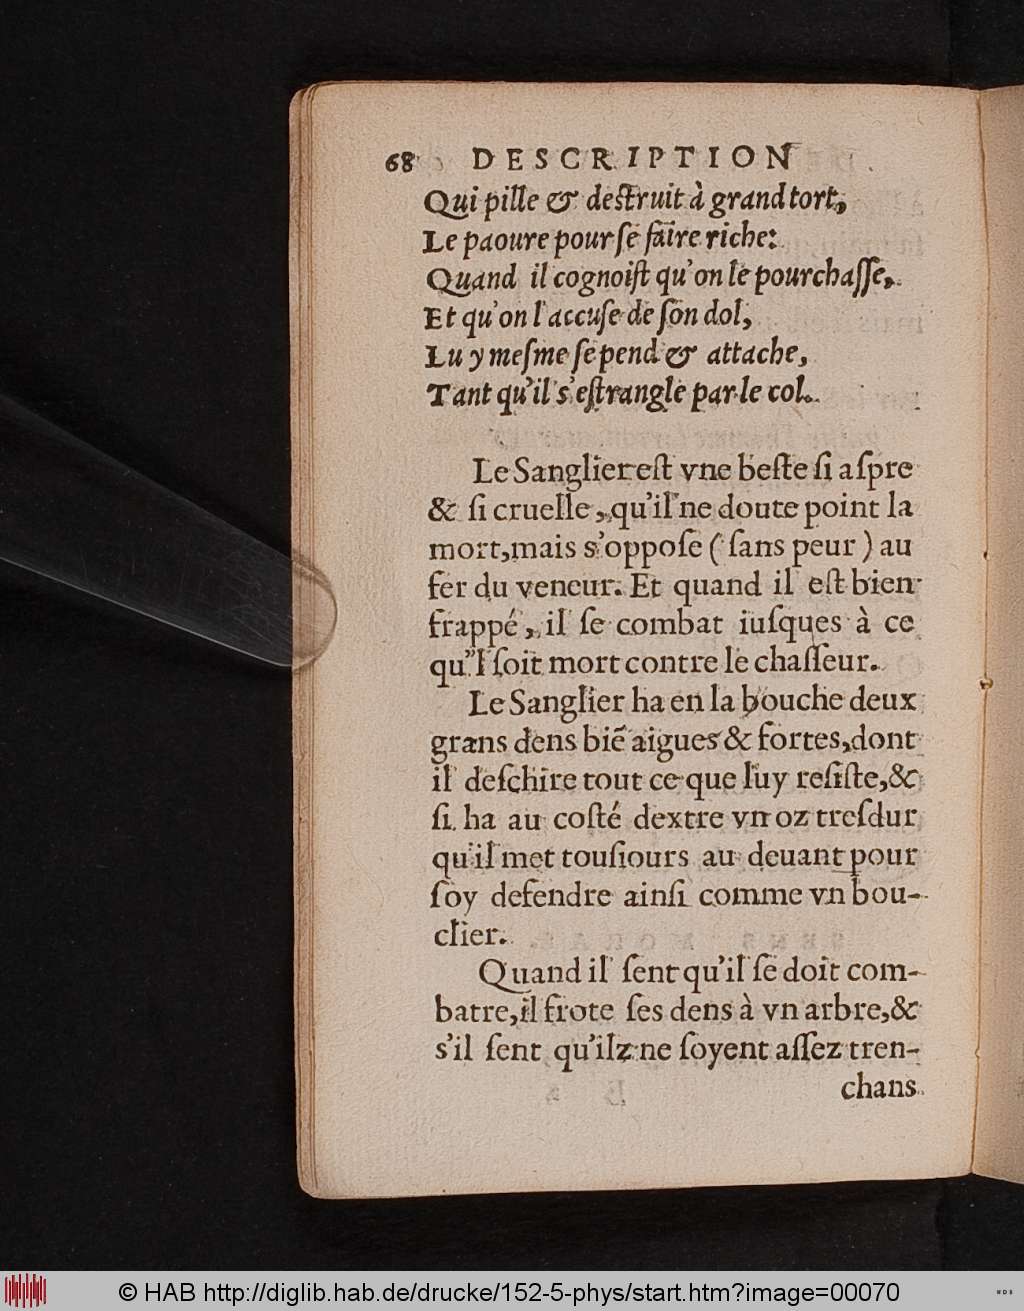 68 DESCRIPTION
Qui pille & destruit à grand tort,
Le paoure pour ſe faire riche:
Quand il cognoiſt qu'on le pourchaſſe,
Et qu'on l'accuſe de ſon dol,
Luy meſme ſe pend & attache,
Tant qu'il s'eſtrangle par le col.
Le Sanglier eſt vne beſte ſi aſpre
& ſi cruelle, qu'il ne doute point la
mort, mais s'oppoſe (ſans peur) au
fer du veneur. Et quand il eſt bien
frappé, il ſe combat iuſques à ce
qu'’l ſoit mort contre le chaſſeur.
Le Sanglier ha en la bouche deux
grans dens biẽ aigues & fortes, dont
il deſchire tout ce que luy reſiſte, &
ſi ha au coſté dextre vn oz treſdur
qu'il met touſiours au deuant pour
ſoy defendre ainſi comme vn bou-
clier.
Quand il ſent qu'il ſe doit com-
batre, il frote ſes dens à vn arbre, &
s'il ſent qu'ilz ne ſoyent aſſez tren-
chans
© HAB http://diglib.hab.de/drucke/152-5-phys/start.htm?image=00070